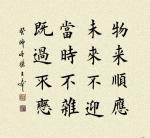 物來順應
未來不迎
當時不雜
既過不戀
癸卯